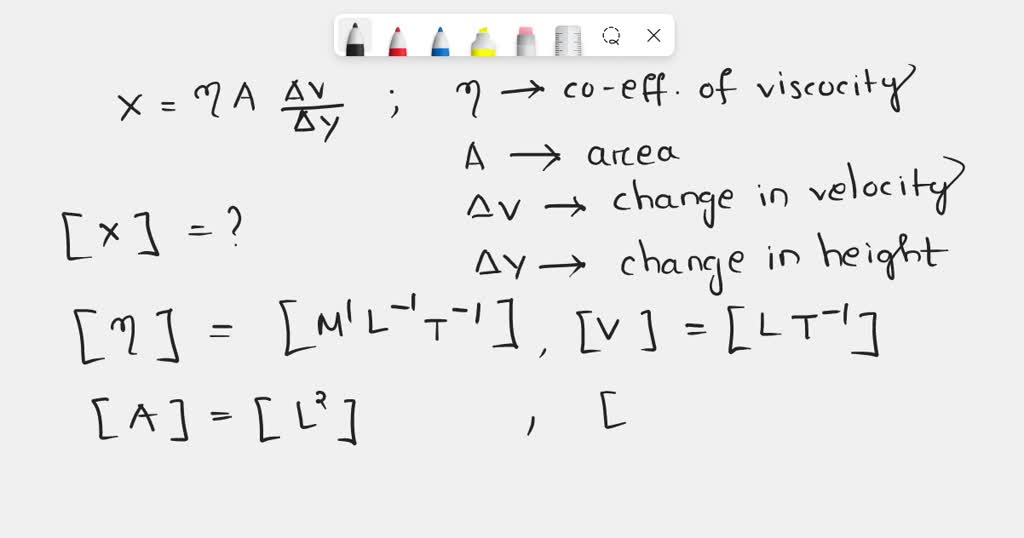 X = η A ΔV/ΔY ; η → co-eff. of viscocity
A → area
[X] = ? ΔV → change in velocity
ΔY → change in height
[η] = [M¹ L⁻¹ T⁻¹] , [V] = [L T⁻¹]
[A] = [L²] , [